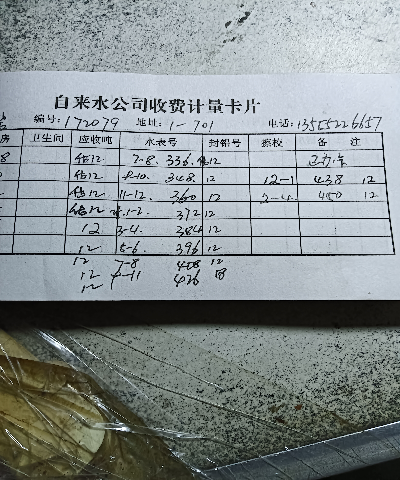 自来水公司收费计量卡片
编号:172079 地址:1-701 电话:13555226657
房 卫生间 应收吨 水表号 封铅号 察校 备注
8 估12 7-8. 336.
估12 8-10. 348. 12 12-1 438 12
估12 11-12. 360 12 2-4. 450 12
估12 1-2. 372 12
12 3-4. 384 12
12 5-6. 396 12
12 7-8 408 12
12 9-11 426 18
12